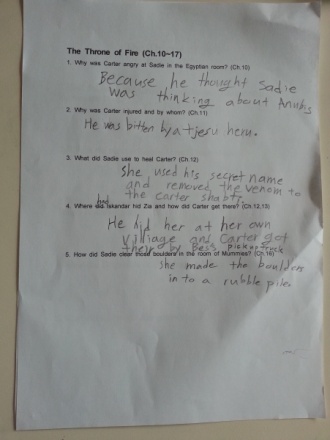 The Throne of Fire (Ch.10~17)
1. Why was Carter angry at Sadie in the Egyptian room? (Ch.10)
Because he thought Sadie
was thinking about Anubis
2. Why was Carter injured and by whom? (Ch.11)
He was bitten by a tjesu heru.
3. What did Sadie use to heal Carter? (Ch.12)
She used his secret name
and removed the venom to
the carter shabti.
had
4. Where was Iskandar hid Zia and how did Carter get there? (Ch.12,13)
He hid her at her own
village and Carter got
their by Bes's pickup truck
5. How did Sadie clear those boulders in the room of Mummies? (Ch.16)
she made the boulders
in to a rubble piles